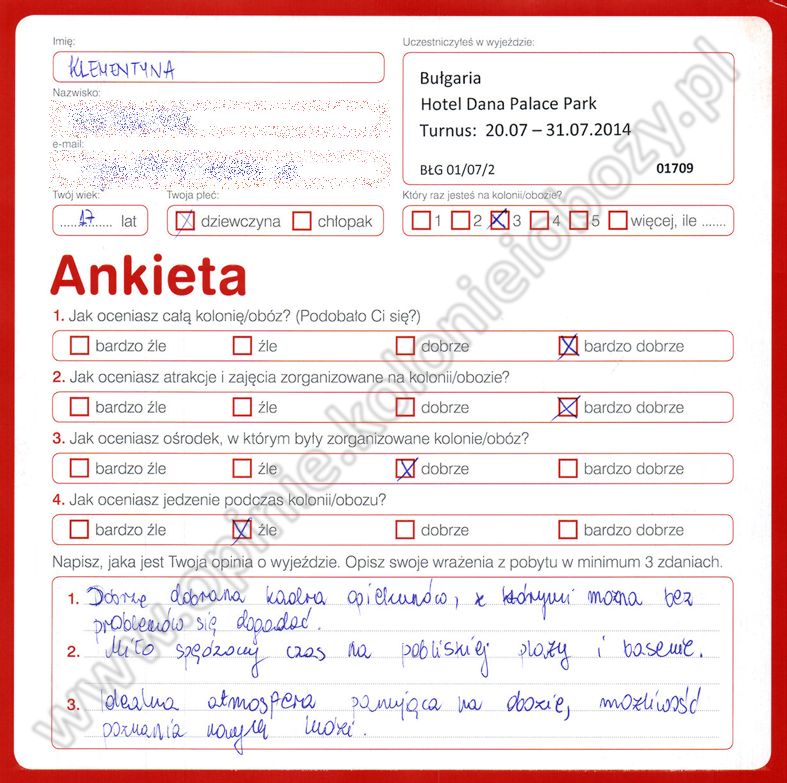 Imię:
KLEMENTYNA
Uczestniczyłeś w wyjeździe:
Bułgaria
Hotel Dana Palace Park
Turnus: 20.07 – 31.07.2014
BŁG 01/07/2
01709
Nazwisko:
e-mail:
Twój wiek:
Twoja płeć:
Który raz jesteś na kolonii/obozie?
17 lat
dziewczyna
chłopak
1 2 3 4 5 więcej, ile .......
Ankieta
1. Jak oceniasz całą kolonię/obóz? (Podobało Ci się?)
bardzo źle źle dobrze bardzo dobrze
2. Jak oceniasz atrakcje i zajęcia zorganizowane na kolonii/obozie?
bardzo źle źle dobrze bardzo dobrze
3. Jak oceniasz ośrodek, w którym były zorganizowane kolonie/obóz?
bardzo źle źle dobrze bardzo dobrze
4. Jak oceniasz jedzenie podczas kolonii/obozu?
bardzo źle źle dobrze bardzo dobrze
Napisz, jaka jest Twoja opinia o wyjeździe. Opisz swoje wrażenia z pobytu w minimum 3 zdaniach.
1. Dobrze dobrana kadra opiekunów, z którymi można bez
problemów się dogadać.
2. Miło spędzony czas na pobliskiej plaży i basenie.
3. Idealna atmosfera panująca na obozie, możliwość
poznania nowych ludzi.
www.opinie.kolonieiobozy.pl